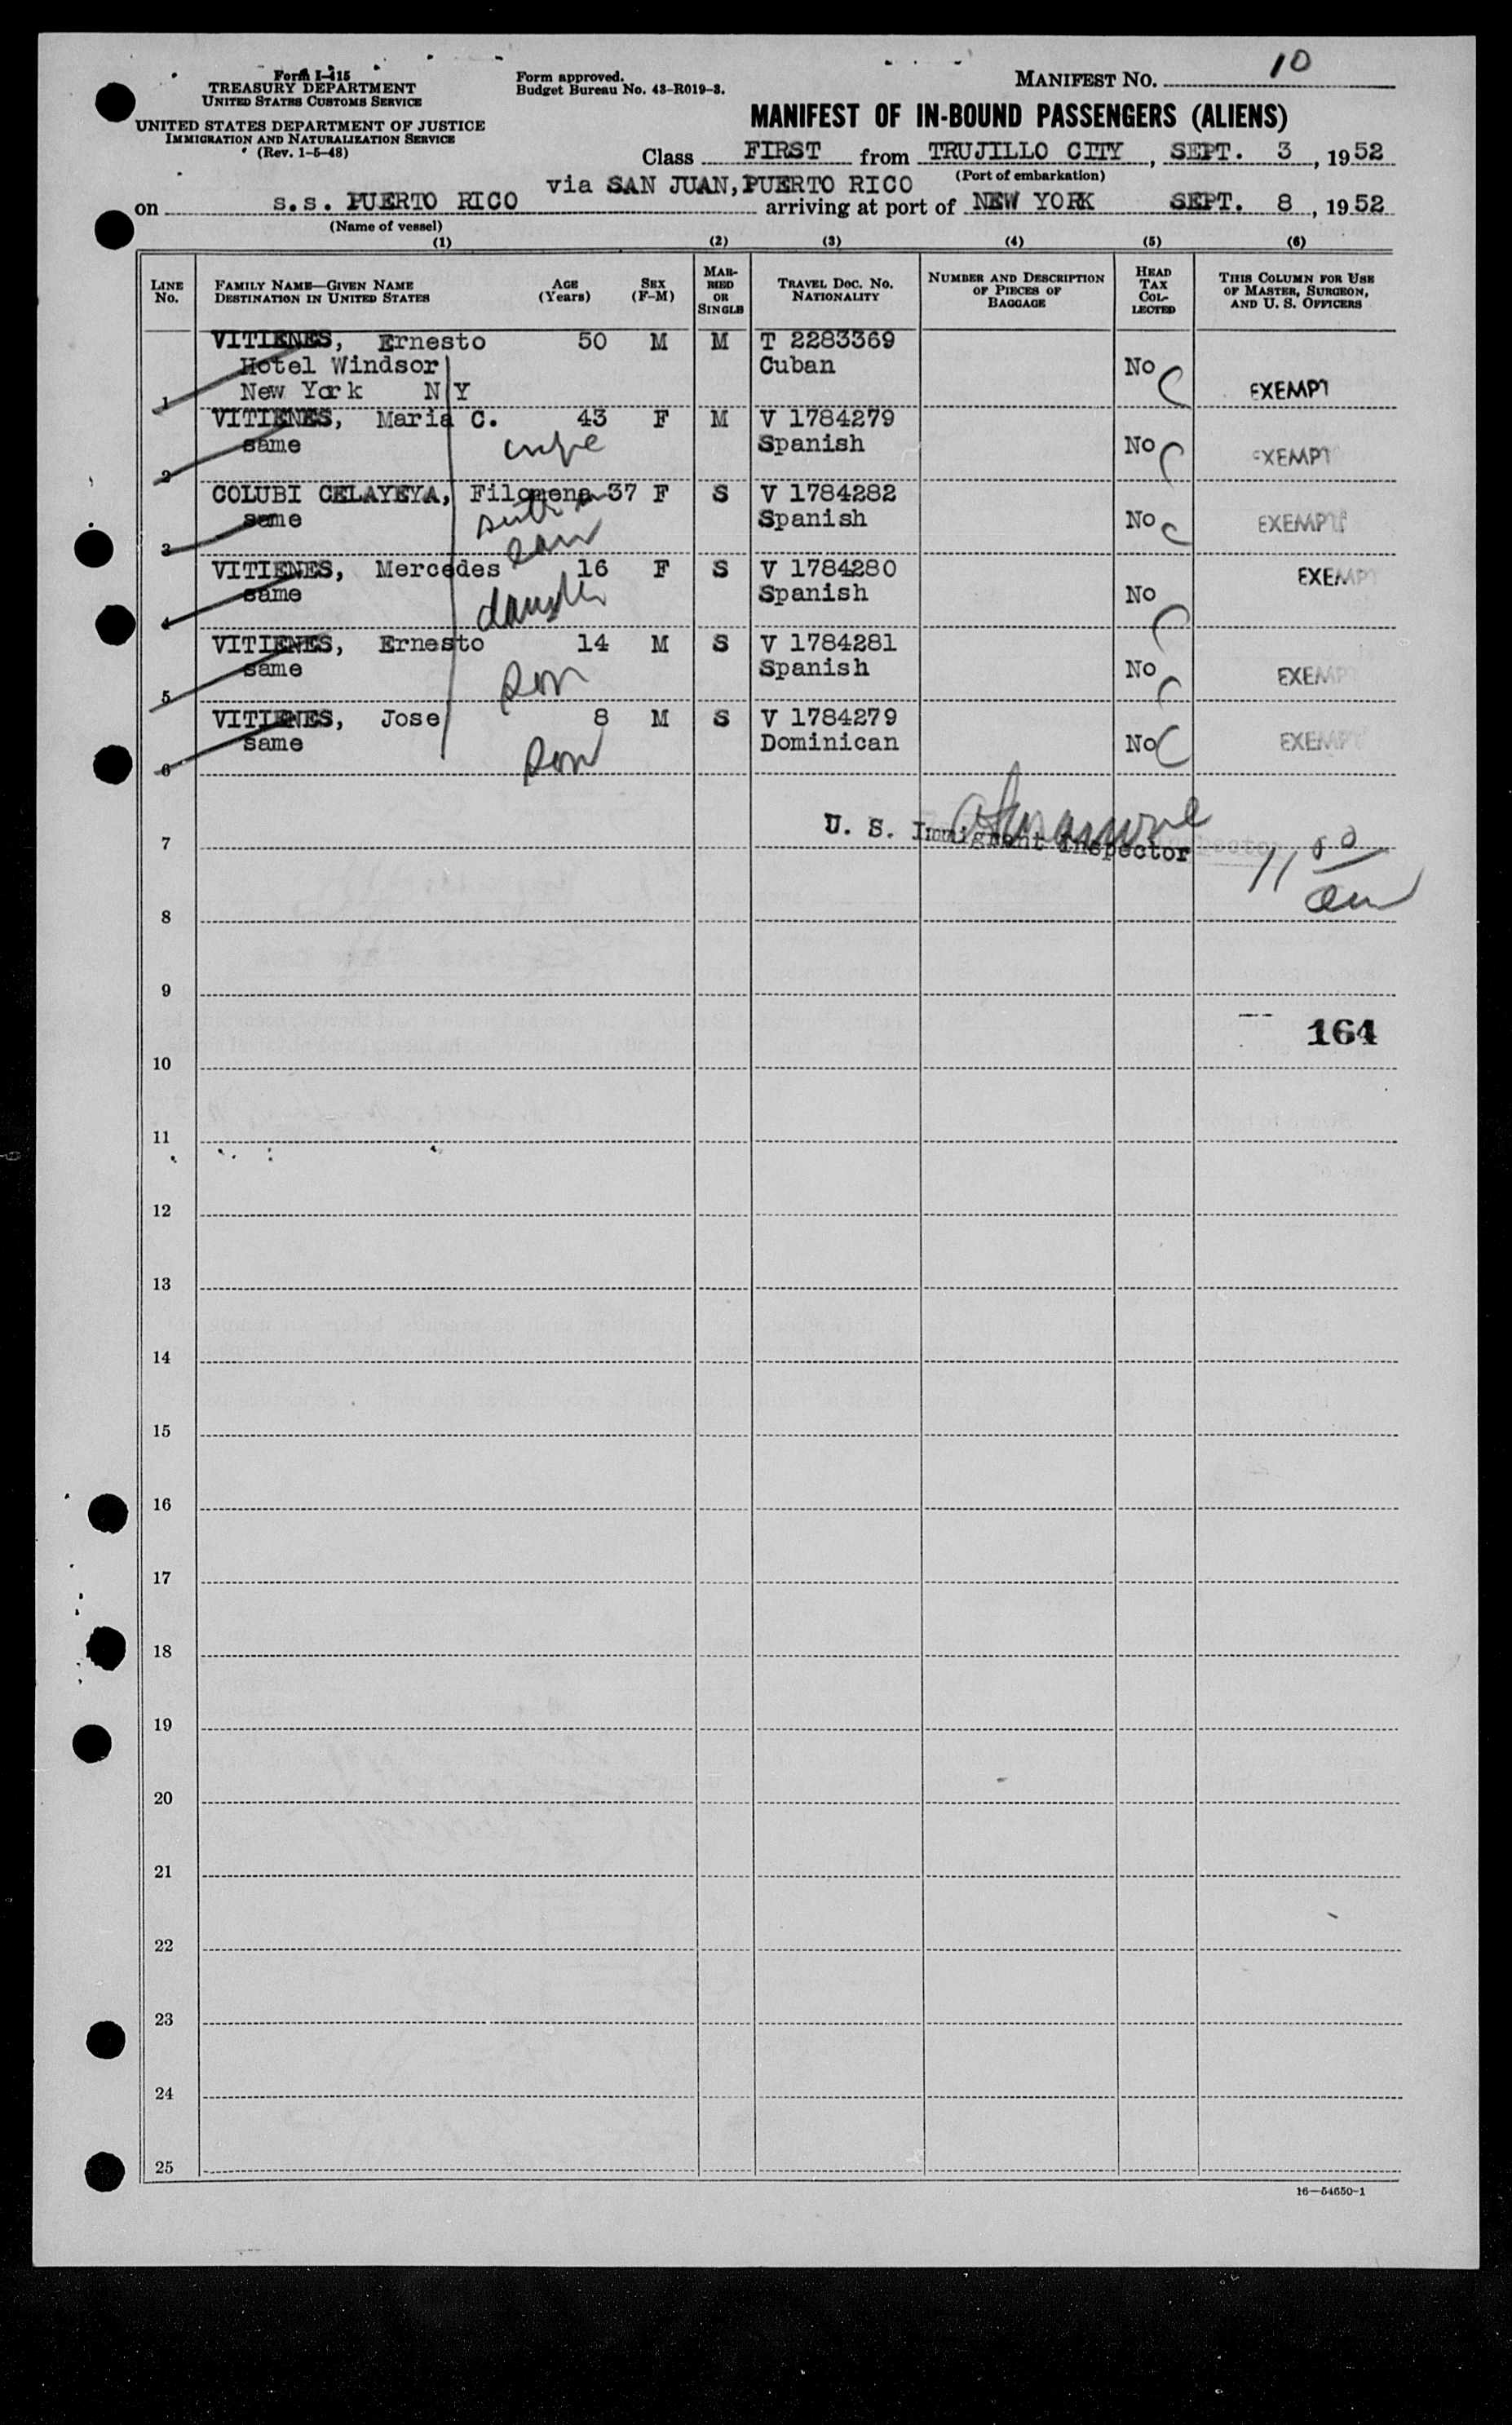 Form I-415
TREASURY DEPARTMENT
UNITED STATES CUSTOMS SERVICE
UNITED STATES DEPARTMENT OF JUSTICE
IMMIGRATION AND NATURALIZATION SERVICE
(Rev. 1-5-48)
Form approved.
Budget Bureau No. 43-R019-3.
MANIFEST NO. 10
MANIFEST OF IN-BOUND PASSENGERS (ALIENS)
Class FIRST from TRUJILLO CITY, SEPT. 3, 1952
(Port of embarkation)
via SAN JUAN, PUERTO RICO
on s.s. PUERTO RICO arriving at port of NEW YORK SEPT. 8, 1952
(Name of vessel)
(1) (2) (3) (4) (5) (6)
LINE No. FAMILY NAME—GIVEN NAME DESTINATION IN UNITED STATES AGE (Years) SEX (F-M) MARRIED OR SINGLE TRAVEL DOC. NO. NATIONALITY NUMBER AND DESCRIPTION OF PIECES OF BAGGAGE HEAD TAX COLLECTED THIS COLUMN FOR USE OF MASTER, SURGEON, AND U. S. OFFICERS
VITIENES, Ernesto 50 M M T 2283369
Hotel Windsor Cuban No
1 New York N Y EXEMPT
VITIENES, Maria C. 43 F M V 1784279
same wife Spanish No EXEMPT
2
COLUBI CELAYEYA, Filomena 37 F S V 1784282
same Spanish No EXEMPT
3
VITIENES, Mercedes 16 F S V 1784280 EXEMPT
same Spanish No
4 daughter
VITIENES, Ernesto 14 M S V 1784281
same Spanish No EXEMPT
5 son
VITIENES, Jose 8 M S V 1784279
same Dominican No EXEMPT
6 son
U. S. Immigrant Inspector
7
11 50 am
8
9
164
10
11
12
13
14
15
16
17
18
19
20
21
22
23
24
25
16—54650-1